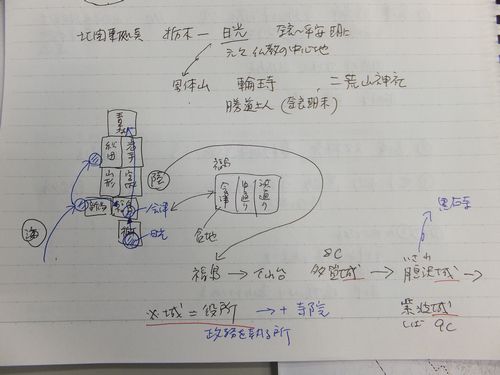 北関東 栃木 — 日光 奈良〜平安
元々 仏教の中心地
男体山 輪王寺 、二荒山神社
勝道上人 (奈良期末)
青森
秋田 岩手
山形 宮城
陸
新潟 福島
会津
栃木
日光
海
福島
会津 中通り 浜通り
盆地
黒石寺
福島 → 仙台 8C 多賀城 → いさわ 胆沢城 →
※城=役所 → + 寺院
政務を執る所
紫波城
しば 9C